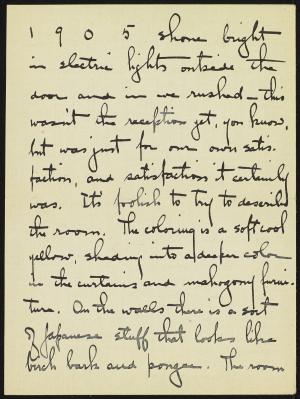 1 9 0 5 shone bright
in electric lights outside the
door and in we rushed – this
wasn't the reception yet, you know,
but was just for our own satis-
faction, and satisfaction it certainly
was. It's foolish to try to describe
the room. The coloring is a soft cool
yellow, shading into a deeper color
in the curtains and mahogony furni-
ture. On the walls there is a sort
of Japanese stuff that looks like
birch bark and pongee. The room